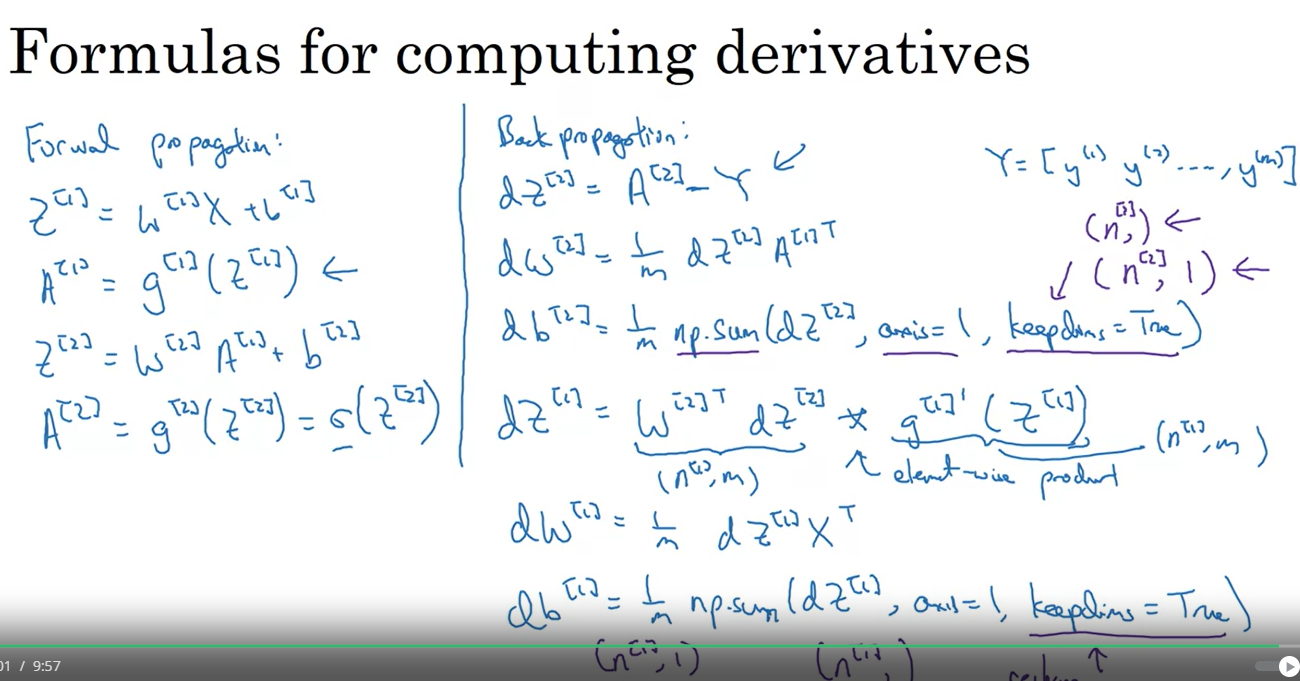 Formulas for computing derivatives
Forward propagation:
Z^[1] = W^[1]X + b^[1]
A^[1] = g^[1](Z^[1]) ←
Z^[2] = W^[2] A^[1] + b^[2]
A^[2] = g^[2](Z^[2]) = σ(Z^[2])
Back propagation:
dZ^[2] = A^[2] - Y ↙
dW^[2] = 1/m dZ^[2] A^[1]T
db^[2] = 1/m np.sum(dZ^[2], axis=1, keepdims=True)
dZ^[1] = W^[2]T dZ^[2] * g^[1]'(Z^[1])
(n^[1], m) ↑ element-wise product (n^[1], m)
dW^[1] = 1/m dZ^[1] X^T
db^[1] = 1/m np.sum(dZ^[1], axis=1, keepdims=True)
(n^[1], 1) (n^[1],) ↑
Y = [y^(1) y^(2) ...., y^(m)]
(n^[2],) ←
↙ (n^[2], 1) ←
01 / 9:57